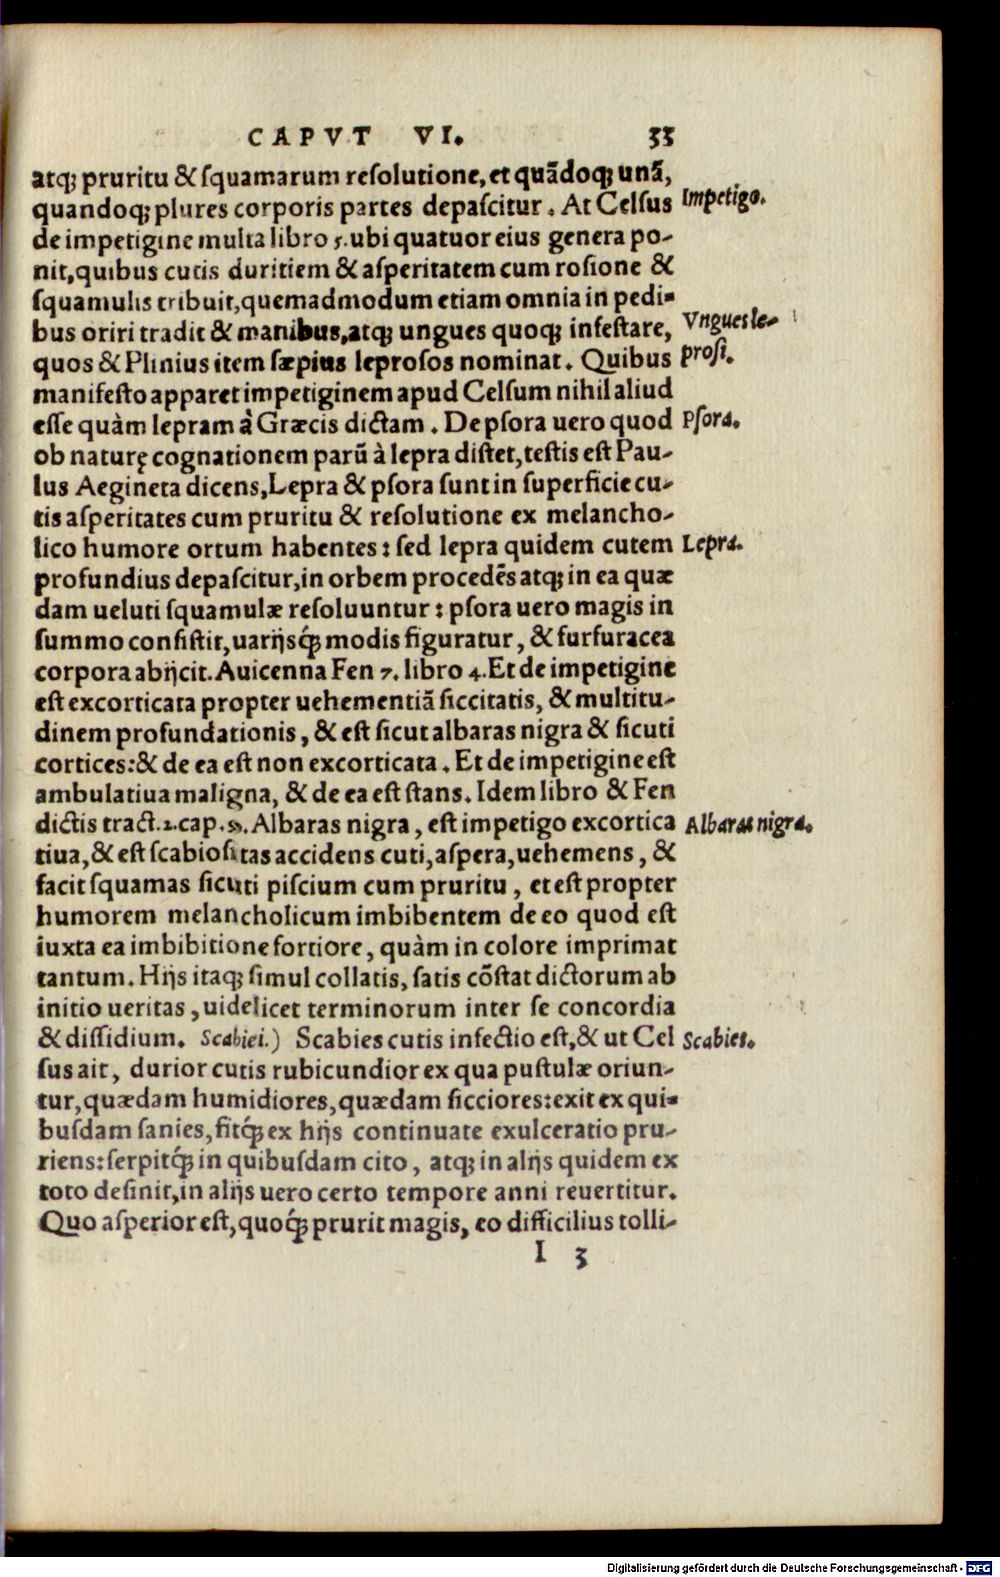 CAPVT VI. 33
atq; pruritu & ſquamarum reſolutione, et quãdoq; unã,
quandoq; plures corporis partes depaſcitur. At Celſus Impetigo.
de impetigine multa libro 5. ubi quatuor eius genera po-
nit, quibus cutis duritiem & aſperitatem cum roſione &
ſquamulis tribuit, quemadmodum etiam omnia in pedi-
bus oriri tradit & manibus, atq; ungues quoq; infeſtare, Vngues le-
quos & Plinius item ſæpius leproſos nominat. Quibus proſi.
manifeſto apparet impetiginem apud Celſum nihil aliud
eſſe quàm lepram à Græcis dictam. De pſora uero quod Pſora.
ob naturę cognationem parũ à lepra diſtet, teſtis eſt Pau-
lus Aegineta dicens, Lepra & pſora ſunt in ſuperficie cu-
tis aſperitates cum pruritu & reſolutione ex melancho-
lico humore ortum habentes: ſed lepra quidem cutem Lepra.
profundius depaſcitur, in orbem procedẽs atq; in ea quæ
dam ueluti ſquamulæ reſoluuntur: pſora uero magis in
ſummo conſiſtit, uarijsq́; modis figuratur, & furfuracea
corpora abijcit. Auicenna Fen 7. libro 4. Et de impetigine
eſt excorticata propter uehementiã ſiccitatis, & multitu-
dinem profundationis, & eſt ſicut albaras nigra & ſicuti
cortices: & de ea eſt non excorticata. Et de impetigine eſt
ambulatiua maligna, & de ea eſt ſtans. Idem libro & Fen
dictis tract. 2. cap. 9. Albaras nigra, eſt impetigo excortica Albaras nigra.
tiua, & eſt ſcabioſitas accidens cuti, aſpera, uehemens, &
facit ſquamas ſicuti piſcium cum pruritu, et eſt propter
humorem melancholicum imbibentem de eo quod eſt
iuxta ea imbibitione fortiore, quàm in colore imprimat
tantum. Hijs itaq; ſimul collatis, ſatis cõſtat dictorum ab
initio ueritas, uidelicet terminorum inter ſe concordia
& diſſidium. Scabiei.) Scabies cutis infectio eſt, & ut Cel Scabies.
ſus ait, durior cutis rubicundior ex qua puſtulæ oriun-
tur, quædam humidiores, quædam ſicciores: exit ex qui-
buſdam ſanies, fitq́; ex hijs continuate exulceratio pru-
riens: ſerpitq́; in quibuſdam cito, atq; in alijs quidem ex
toto deſinit, in alijs uero certo tempore anni reuertitur.
Quo aſperior eſt, quoq́; prurit magis, eo difficilius tolli-
I 3
Digitalisierung gefördert durch die Deutsche Forschungsgemeinschaft - DFG